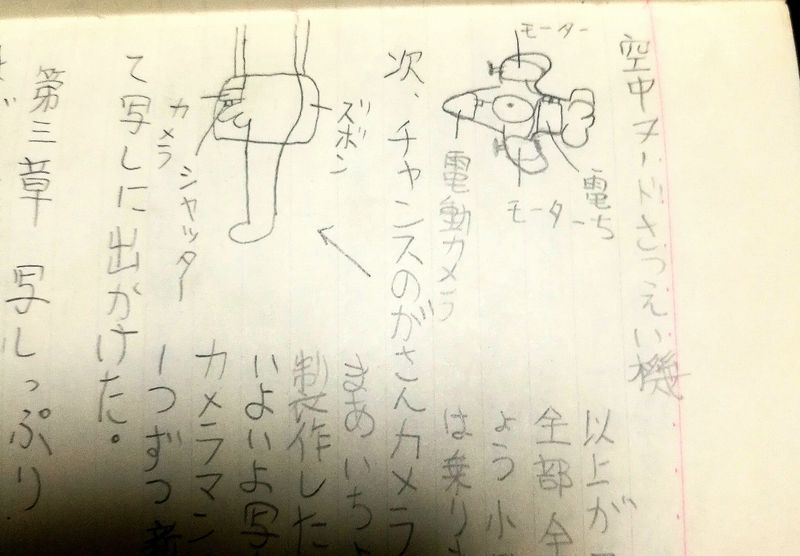 空中ヌードさつえい機
モーター
電ち
モーター
電動カメラ
以上が
全部
ょう小
は乗り
次、チャンスのがさんカメラ
ズボン
シャッター
カメラ
制作した
いよいよ写
カメラマン
1つずつ
て写しに出がけた。
第三章 写しっぷり